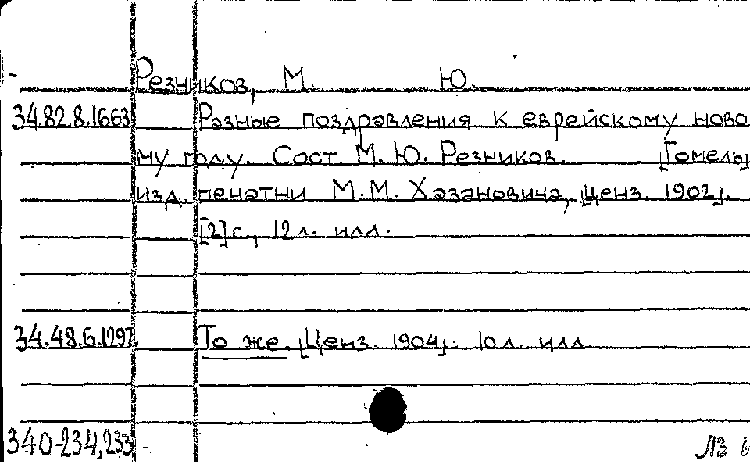 Резников, М. Ю.
34.82.8.1663 Разные поздравления к еврейскому ново
му году. Сост М. Ю. Резников. [Гомель,
изд. печатни М.М. Хазановича, Ценз. 1902].
[2]с., 12л. илл.
34.48.6.1297 То же. [Ценз. 1904]. 10л. илл
340-234,233